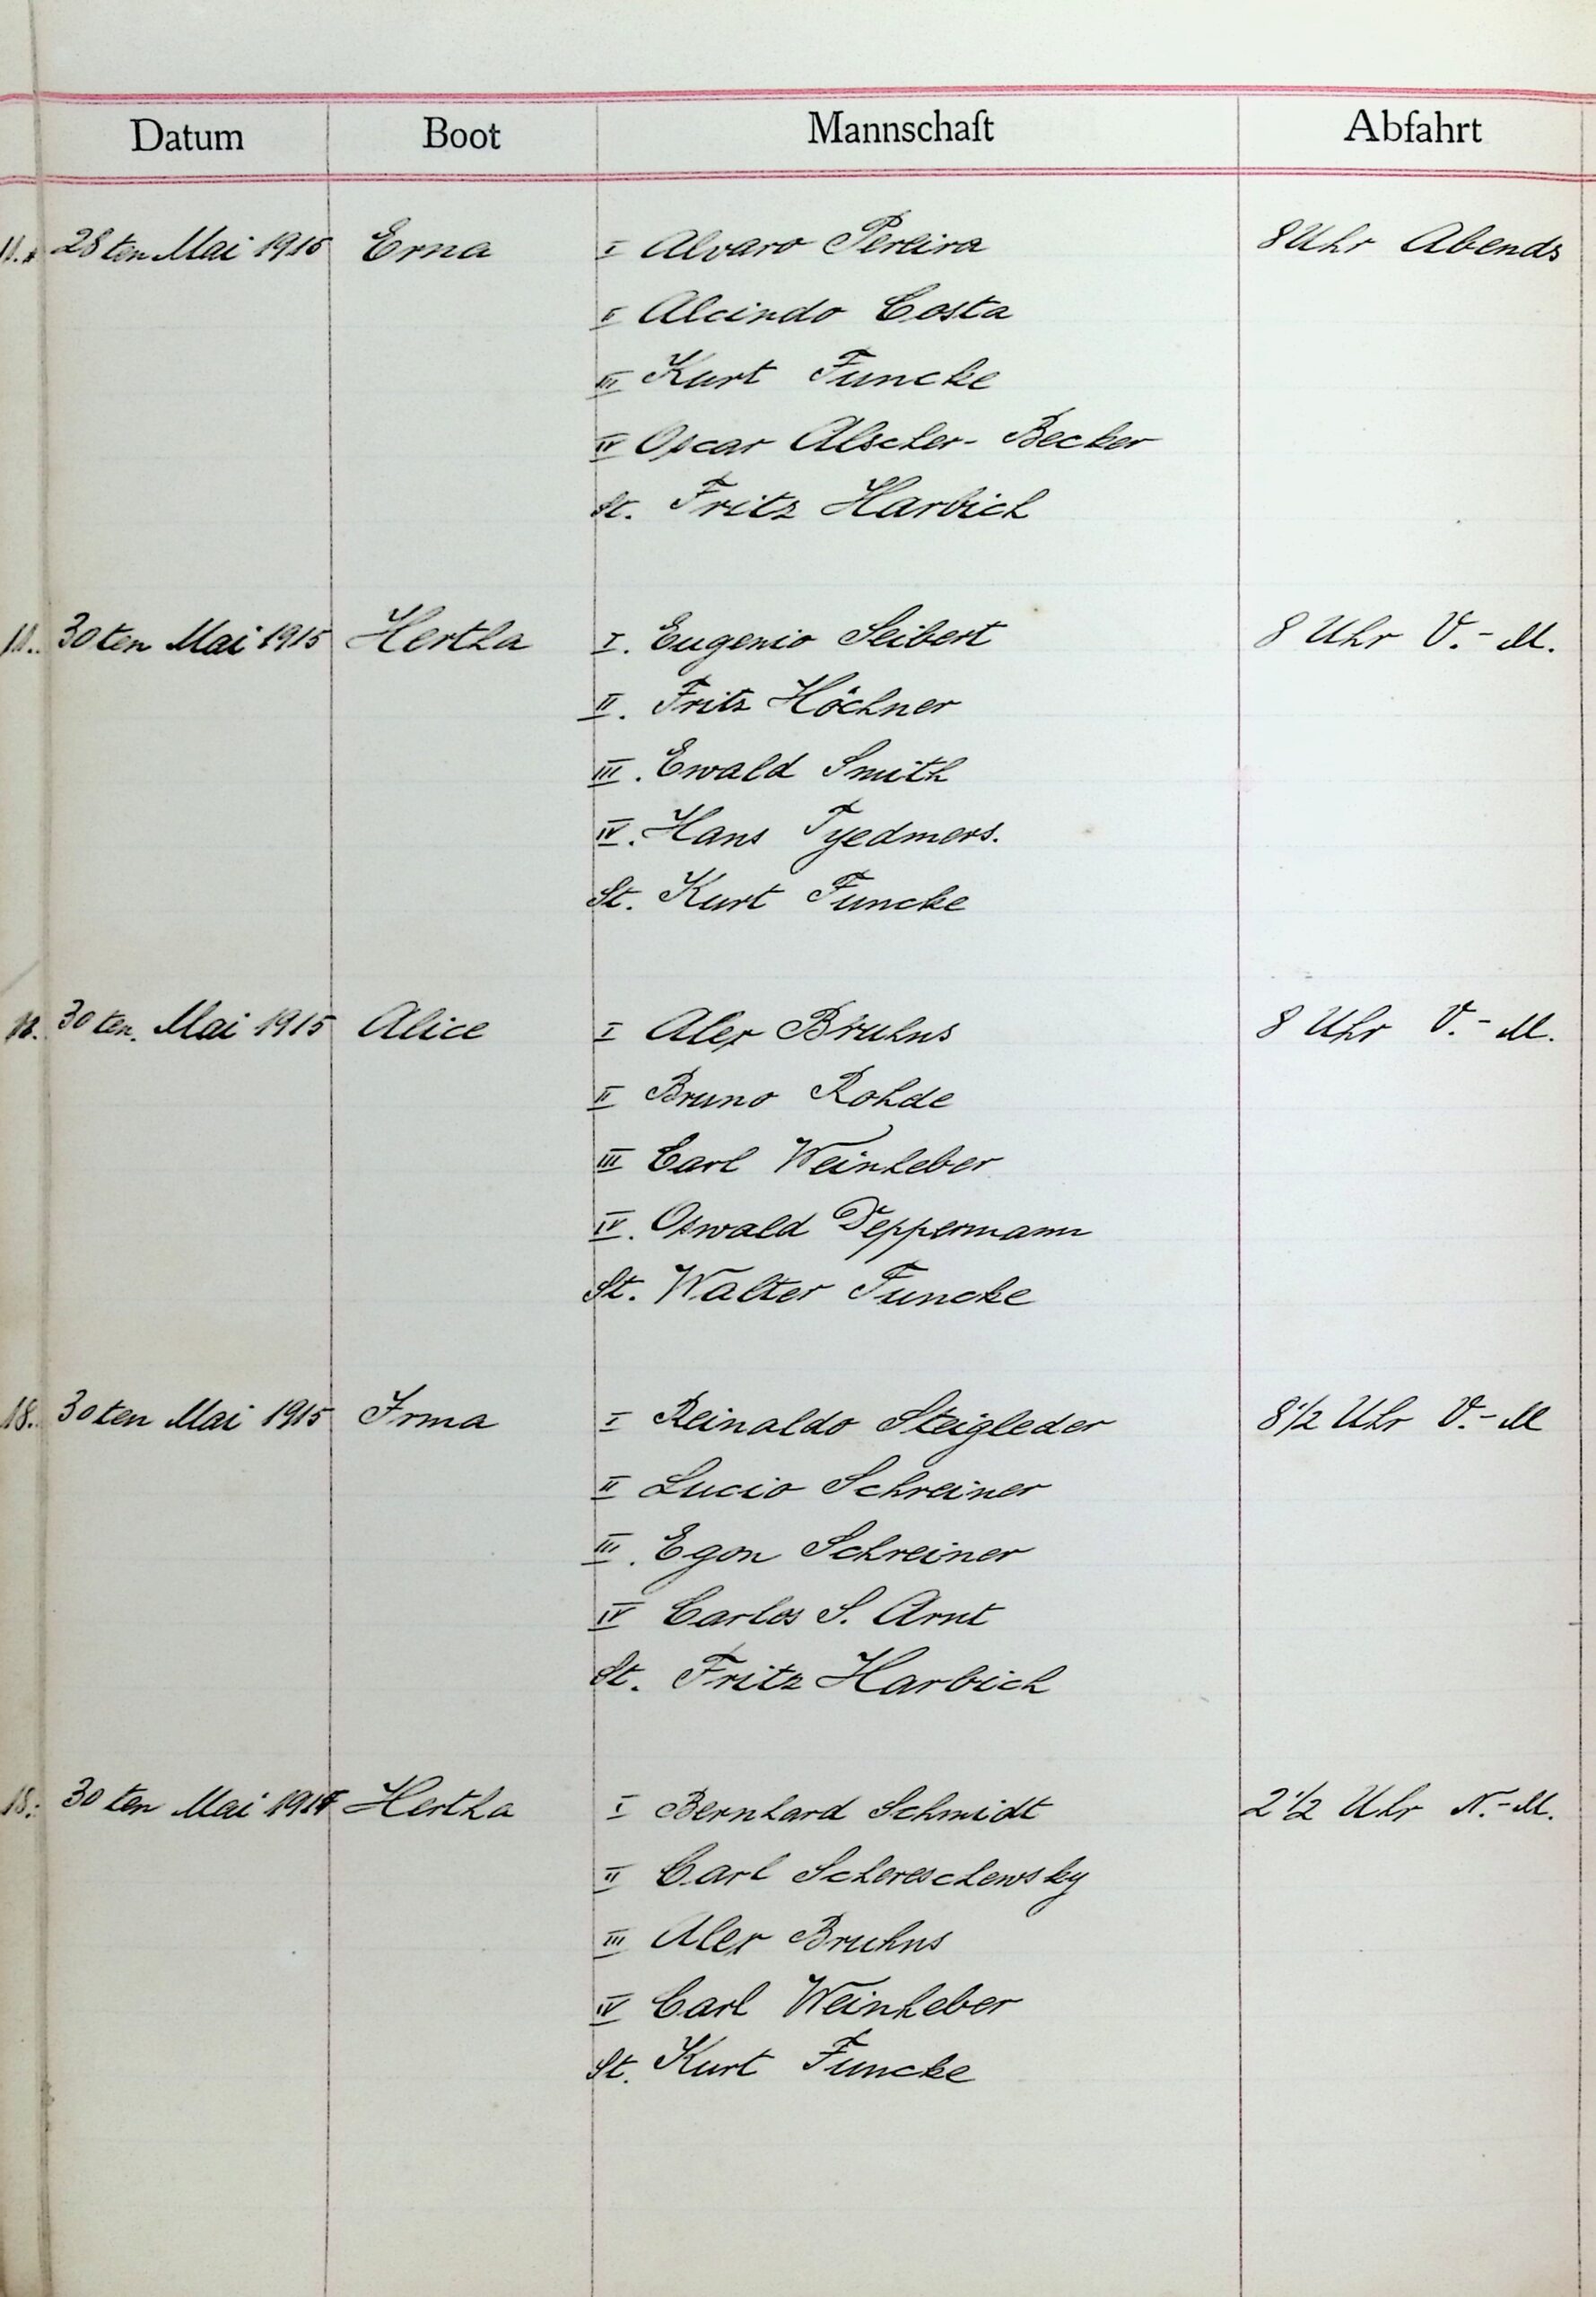 Datum Boot Mannschaft Abfahrt
28ten Mai 1915 Erna I Alvaro Pereira 8 Uhr Abends
II Alcindo Costa
III Kurt Funcke
IV Oscar Alscher- Becker
St. Fritz Harbich
30ten Mai 1915 Hertha I. Eugenio Seibert 8 Uhr V.-M.
II. Fritz Höchner
III. Ewald Smith
IV. Hans Tyedmers.
St. Kurt Funcke
30ten. Mai 1915 Alice I Alex Bruhns 8 Uhr V.-M.
II Bruno Rohde
III Carl Weinheber
IV. Oswald Deppermann
St. Walter Funcke
18. 30ten Mai 1915 Irma I Reinaldo Steigleder 8 1/2 Uhr V.-M
II Lucio Schreiner
III. Egon Schreiner
IV Carlos S. Arnt
St. Fritz Harbich
30ten Mai Hertha I Bernhard Schmidt 2 1/2 Uhr N.-M.
II Carl Schereschewsky
III Alex Bruhns
IV Carl Weinheber
St. Kurt Funcke